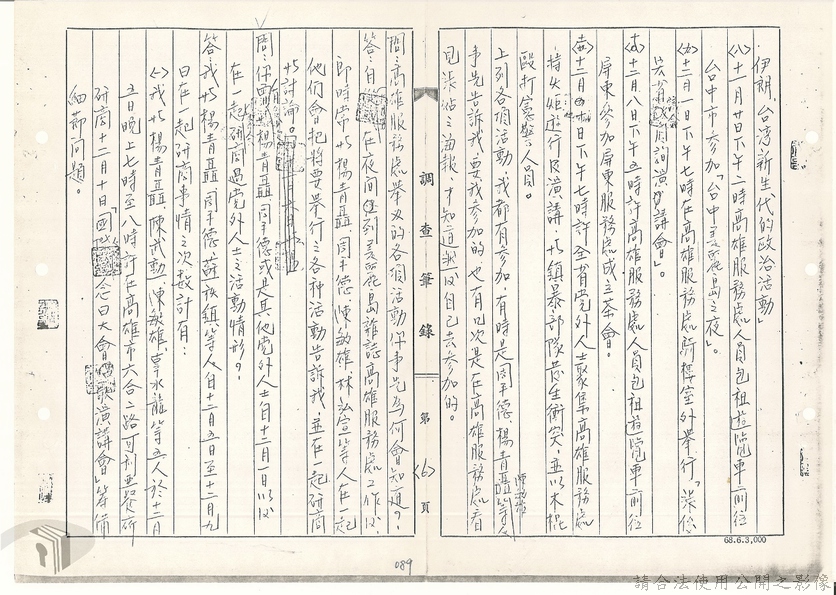 伊朗，台湾新生代的政治活動」
〈八〉十一月廿日下午一時高雄服務處人員包租遊覽車前往
台中市，參加「台中美麗島之夜」。
〈九〉十二月一日下午七時在高雄服務處騎樓室外舉行
演講會」。
〈十〉十二月八日下午五時許高雄服務處人員包租遊覽車前往
屏東參加屏東服務處成立茶會。
十二月十日下午七時許全省党外人士聚集高雄服務處
持火炬遊行及演講，与鎮暴部隊發生衝突，並以木棍
毆打憲警人員。
上列各項活動，我都有參加，有時是周平德、楊青矗等人
事先告訴我要我參加的，也有几次是在高雄服務處看
見張貼之海報，才知道
自己去參加的。
調查筆錄
第〈6〉頁
問：高雄服務處舉办的各項活動你事先為何會知道？
答：自
在夜間
到美麗島雜誌高雄服務處工作以
即時常与楊青矗、周平德、陳敏雄、林弘宣等人在一起
他們會把將要舉行之各种活動告訴我，並在一起研商
与討論。
問：你
楊青矗、周平德或是其他党外人士自十二月一日以
在一起研商過党外人士之活動情形？
答：我与楊青矗、周平德、蘇秋鎮等人自十二月五日至十二月九
日在一起研商事情之次數計有：
㈠我与楊青矗、陳武勳、陳敏雄、李水龍等五人於十二月
五日晚上七時至八時許在高雄市六合二路
研商十二月十日「國
念日大會
演講會」籌備
細節問題。
68.6.3,000
089
請合法使用公開之影像